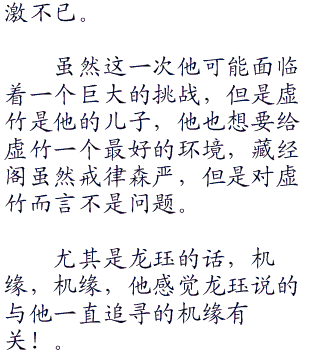 激不已。
虽然这一次他可能面临
着一个巨大的挑战，但是虚
竹是他的儿子，他也想要给
虚竹一个最好的环境，藏经
阁虽然戒律森严，但是对虚
竹而言不是问题。
尤其是龙珏的话，机
缘，机缘，他感觉龙珏说的
与他一直追寻的机缘有
关！。